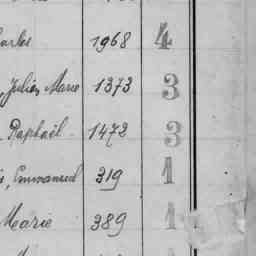 1968 4
, Julien Marie 1373 3
Raphaël 1473 3
, Emmanuel 319 1
Marie 389 1